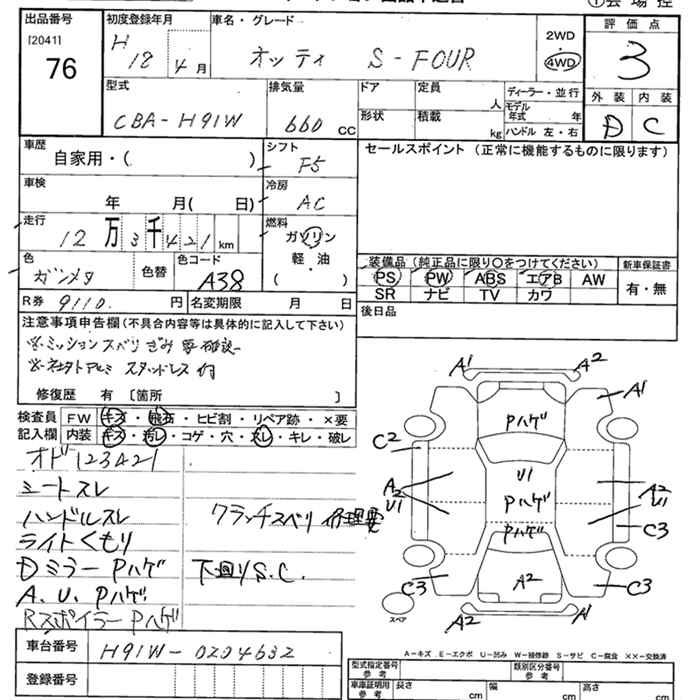 ①会場控
出品番号 初度登録年月 車名・グレード 2WD 評価点
[2041] H 18 4月 オッティ S-FOUR 4WD 3
76
型式 排気量 ドア 定員 ディーラー・並行 外装 内装
人 モデル年式 年
CBA-H91W 660 CC 形状 積載 kg ハンドル 左・右 D C
車歴 シフト セールスポイント (正常に機能するものに限ります)
自家用・( ) F5
車検 冷房
年 月( 日) AC
走行 燃料
12万3千421km ガソリン
色 色替 色コード 軽・油 装備品 (純正品に限り○をつけてください) 新車保証書
ガンメタ A38 ( ) PS PW ABS エアB AW 有・無
SR ナビ TV カワ
R券 9110. 円 名変期限 月 日 後日品
注意事項申告欄(不具合内容等は具体的に記入して下さい)
※ミッションスベリぎみ 要確認
スタッドレス付
修復歴 有 〔箇所 〕
検査員 FW キズ・飛石・ヒビ割・リペア跡・×要
記入欄 内装 キズ・汚レ・コゲ・穴・スレ・キレ・破レ
オド123421
シートスレ
ハンドルスレ クラッチスベリ 修理要
ライトくもり
Dミラー Pハゲ 下回りS.C.
A.U.Pハゲ
Rスポイラー Pハゲ
A1 A2
A1
Pハゲ
C2
U1
A2 U1 Pハゲ A2 U1
Pハゲ C3
C3 A2 C3
スペア A2 A1
A-キズ E-エクボ U-凹み W-補修跡 S-サビ C-腐食 ××-交換済
車台番号 H91W-0204632
登録番号
型式指定番号 参考 類別区分番号 参考
車庫証明用 参考 長さ cm 幅 cm 高さ cm